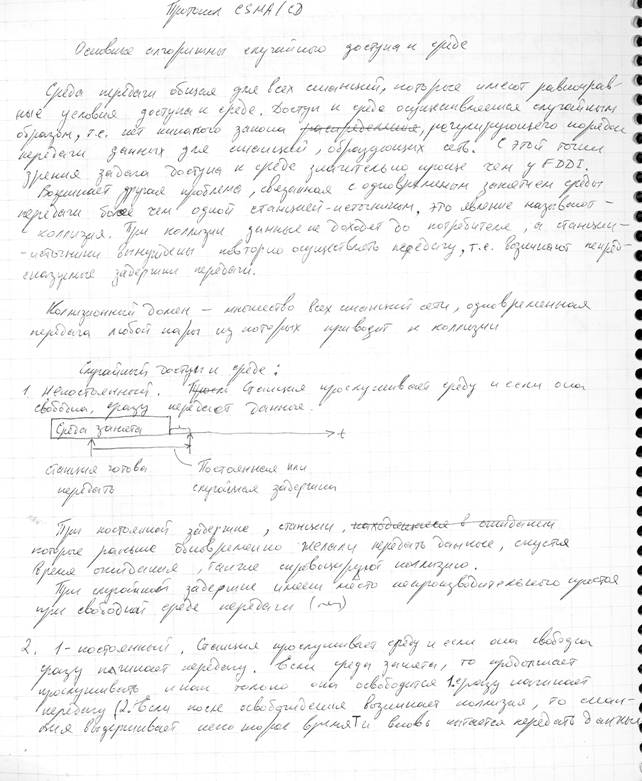 Протокол CSMA/CD
Основные алгоритмы случайного доступа к среде
Среда передачи общая для всех станций, которые имеют равноправ-
ные условия доступа к среде. Доступ к среде осуществляется случайным
образом, т.е. нет никакого закона распределения, регулирующего порядок
передачи данных для станций, образующих сеть. С этой точки
зрения задача доступа к среде значительно проще чем у FDDI.
Возникает другая проблема, связанная с одновременным занятием среды
передачи более чем одной станцией-источником, это явление называют -
коллизия. При коллизии данные не доходят до потребителя, а станции-
-источники вынуждены повторно осуществлять передачу, т.е. возникают непред-
сказуемые задержки передачи.
Коллизионный домен – множество всех станций сети, одновременная
передача любой пары из которых приводит к коллизии
Случайный доступ к среде:
1. Непостоянный. Станция прослушивает среду и если она
свободна, сразу передает данные.
Среда занята
t
станция готова
передать
Постоянная или
случайная задержка
При постоянной задержке, станции, находящиеся в ожидании
которые раньше одновременно желали передать данные, спустя
время ожидания, также спровоцируют коллизию.
При случайной задержке имеет место непроизводительного простоя
при свободной среде передачи
2. 1-постоянный. Станция прослушивает среду и если она свободна
сразу начинает передачу. Если среда занята, то продолжает
прослушивать и как только она освободится 1. сразу начинает
передачу (2. Если после освобождения возникает коллизия, то стан-
ция выдерживает некоторое время T и вновь пытается передать данные